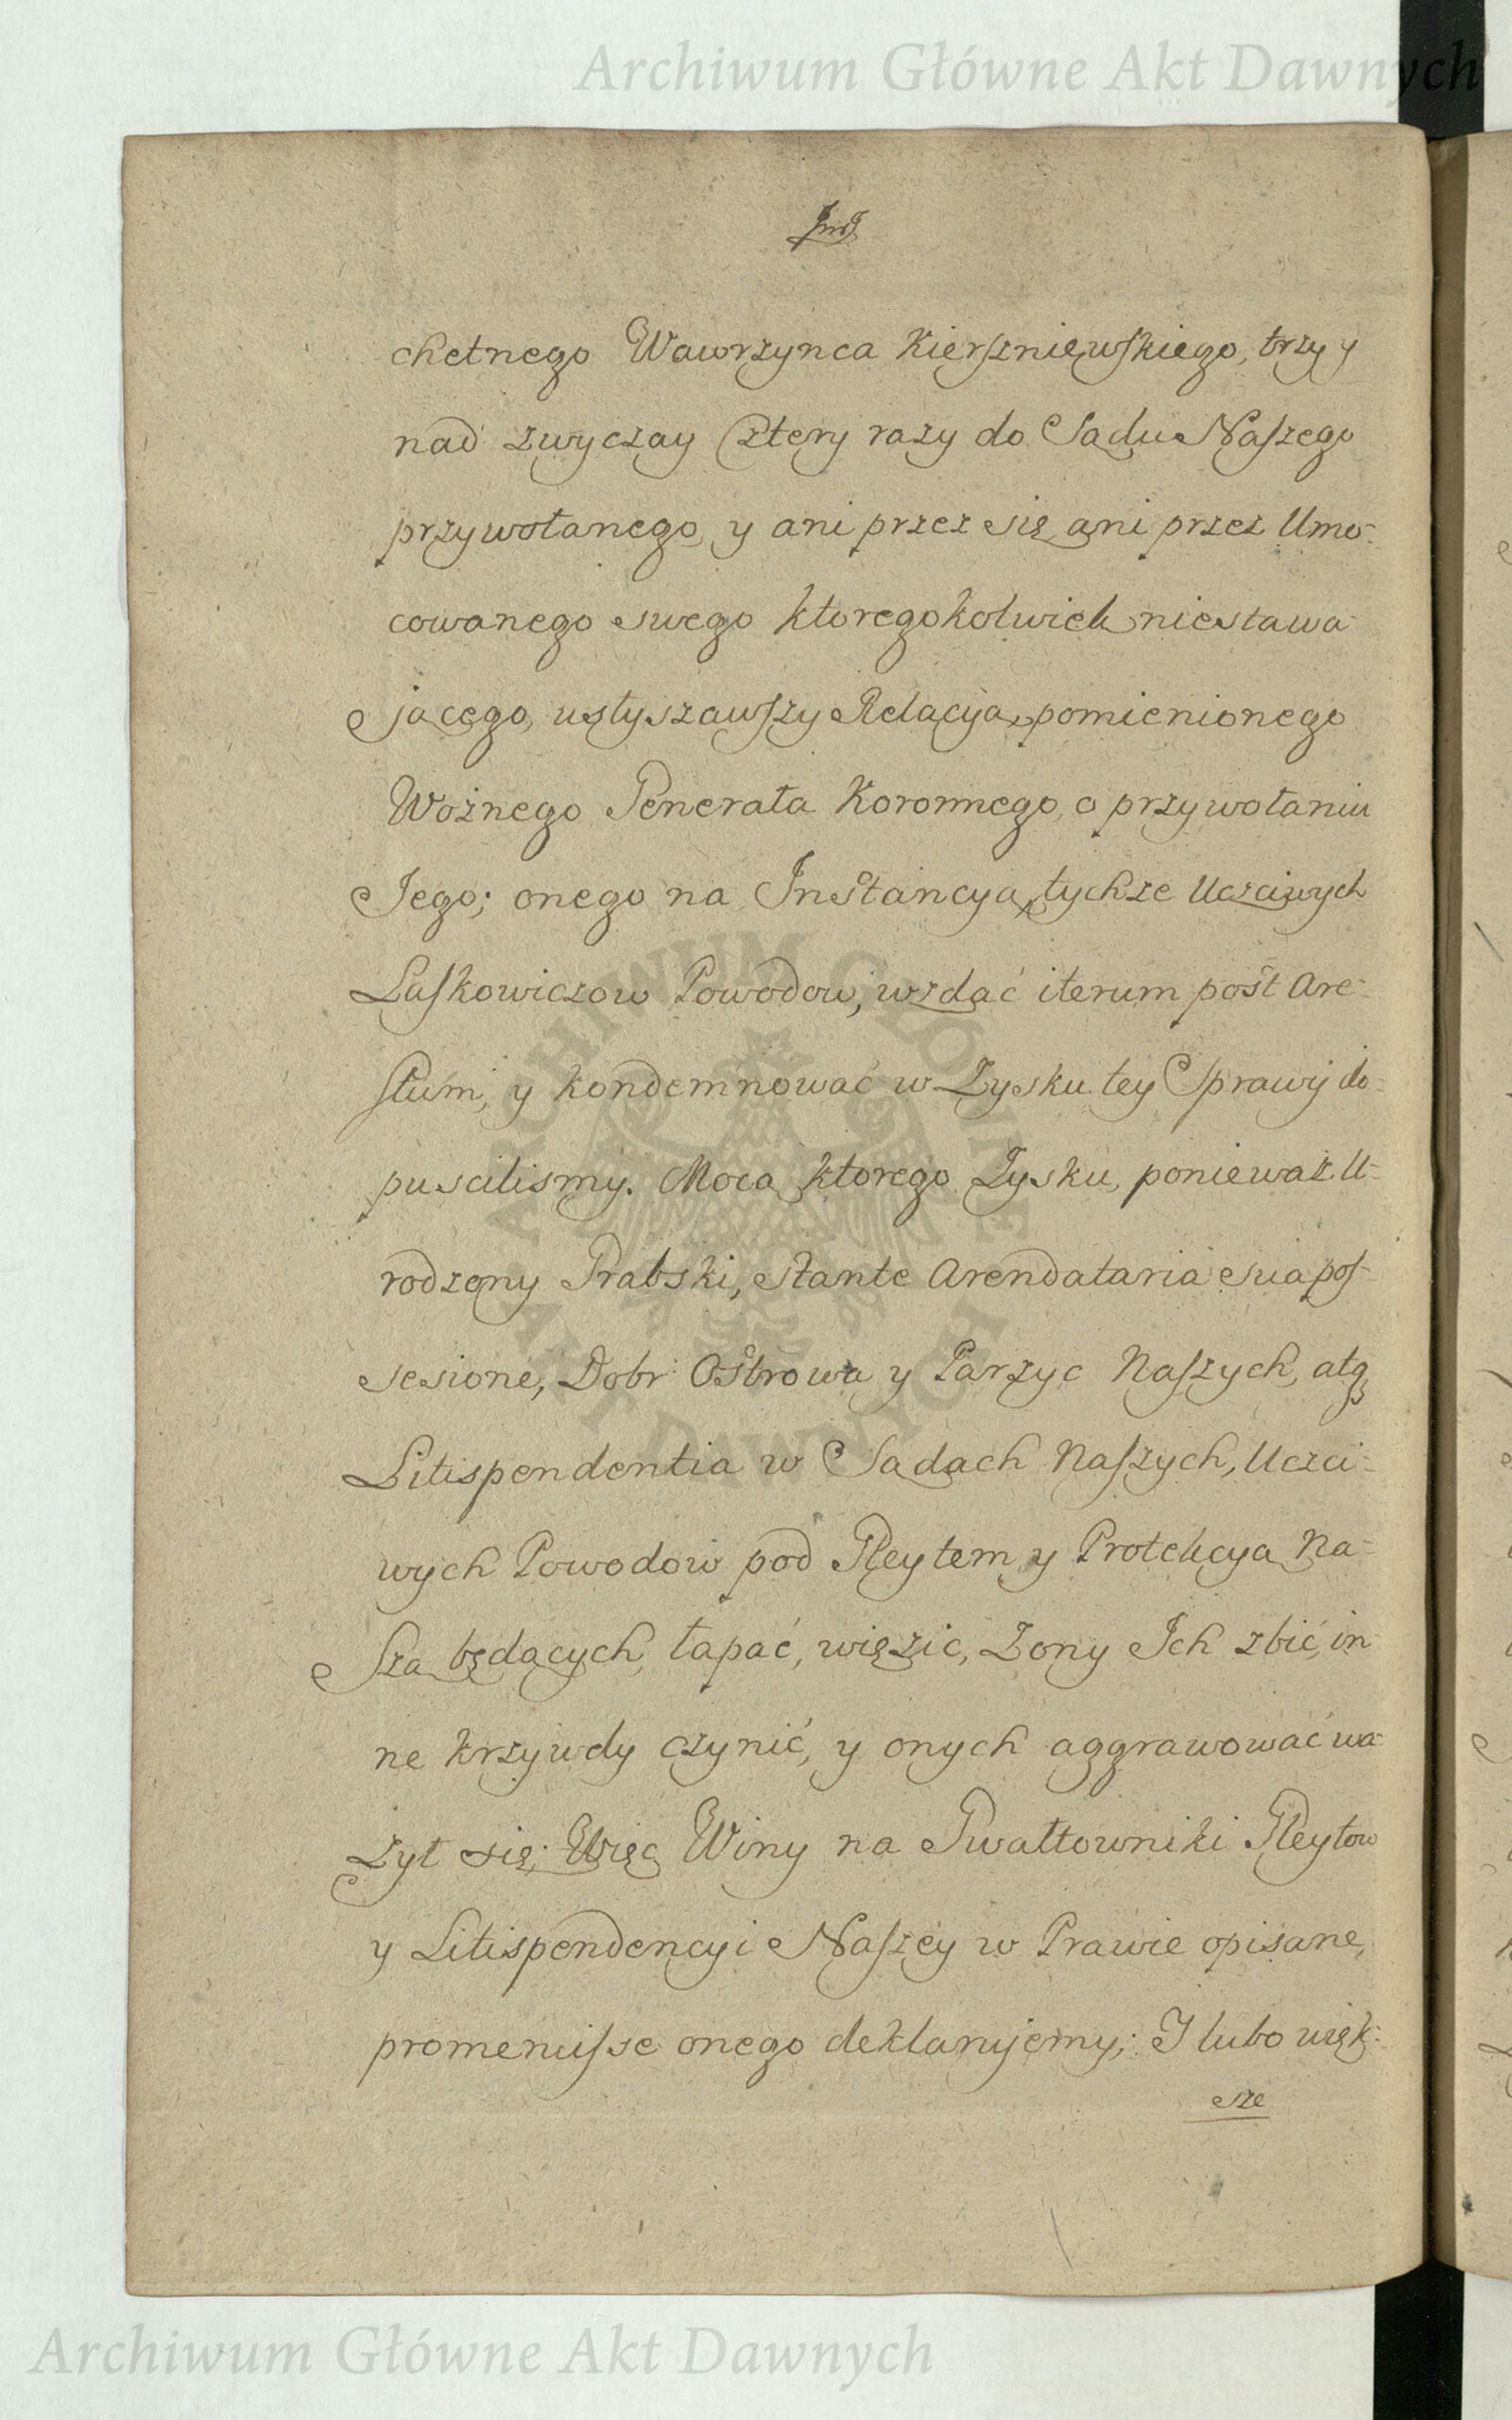 Archiwum Główne Akt Dawnych
chetnego Wawrzynca Kierszniewskiego, trzy y
nad zwyczay cztery razy do Sądu Naszego
przywołanego, y ani przez się ani przez Umo-
cowanego swego ktoregokolwiek niestawa-
jącego, usłyszawszy Relacyą pomienionego
Woźnego Generała Koronnego, o przywołaniu
Jego; onego na Instancyą tychże Uczciwych
Laskowiczow Powodow, wzdać iterum post Are-
stum, y kondemnować w Zysku tey Sprawy do-
puscilismy. Mocą ktorego Zysku, ponieważ U-
rodzony Grabski, stante Arendataria sua pos-
sesione, Dobr Ostrowa y Parzyc Naszych, atq
Litispendentia w Sądach Naszych, Uczci-
wych Powodow pod Gleytem y Protekcyą Na-
szą będących, łapać, więzic, Zony Ich zbić, in-
ne krzywdy czynić, y onych aggrawować wa-
żył się; Więc Winy na Gwałtowniki Gleytow
y Litispendencyi Naszey w Prawie opisane,
promeruisse onego deklarujemy; I lubo więk-
sze
ARCHIWUM GŁÓWNE AKT DAWNYCH
Archiwum Główne Akt Dawnych